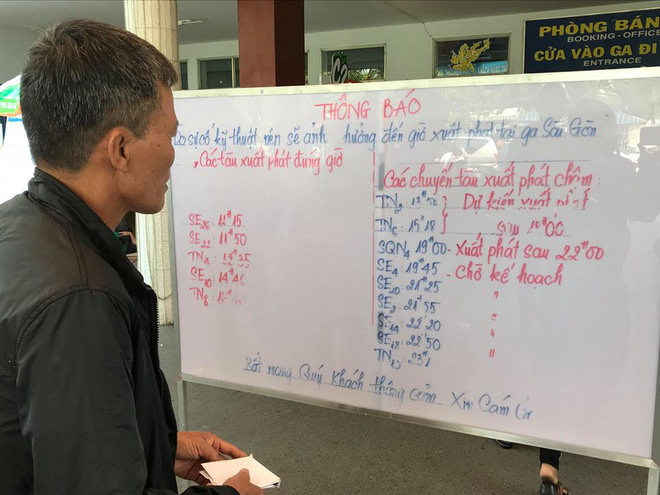 PHÒNG BÁN
BOOKING - OFFICE
CỬA VÀO GA ĐI
ENTRANCE
THÔNG BÁO
Do sự cố kỹ thuật nên sẽ ảnh hưởng đến giờ xuất phát tại ga Sài Gòn
Các tàu xuất phát đúng giờ
SE26: 11H15
SE22: 11H50
TN4
SE10: 14H40
TN8
Các chuyến tàu xuất phát chậm:
TN2 Dự kiến xuất phát
TN6: 15H18 sau
SQN4 19H00 - Xuất phát sau 22H00
SE4: 19H45 - Chờ kế hoạch
SE20: 21H25 "
SE2: 21H55 "
SE14: 22H20 "
SE12: 22H50 "
TN10
Rất mong Quý Khách thông cảm. Xin Cảm ơn